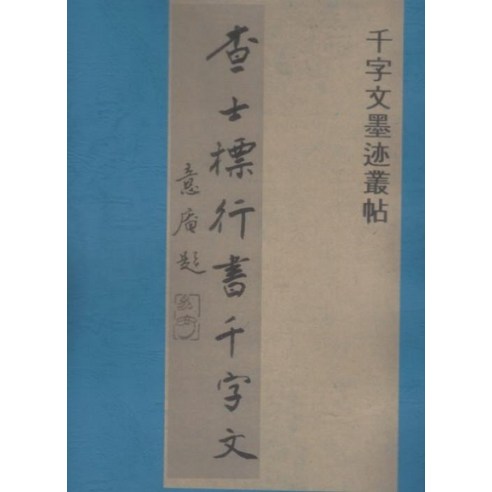 千字文墨迹叢帖
查士標行書千字文
意庵題